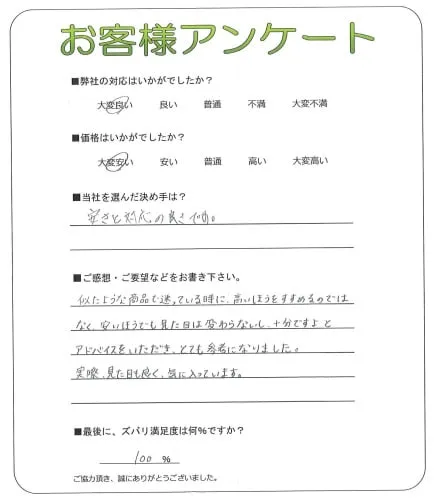 お客様アンケート
■弊社の対応はいかがでしたか？
大変良い 良い 普通 不満 大変不満
■価格はいかがでしたか？
大変安い 安い 普通 高い 大変高い
■当社を選んだ決め手は？
安さと対応の良さです。
■ご感想・ご要望などをお書き下さい。
似たような商品で迷っている時に、高いほうをすすめるのでは
なく、安いほうでも見た目は変わらないし、十分ですよと
アドバイスをいただき、とても参考になりました。
実際、見た目も良く、気に入っています。
■最後に、ズバリ満足度は何％ですか？
100 %
ご協力頂き、誠にありがとうございました。